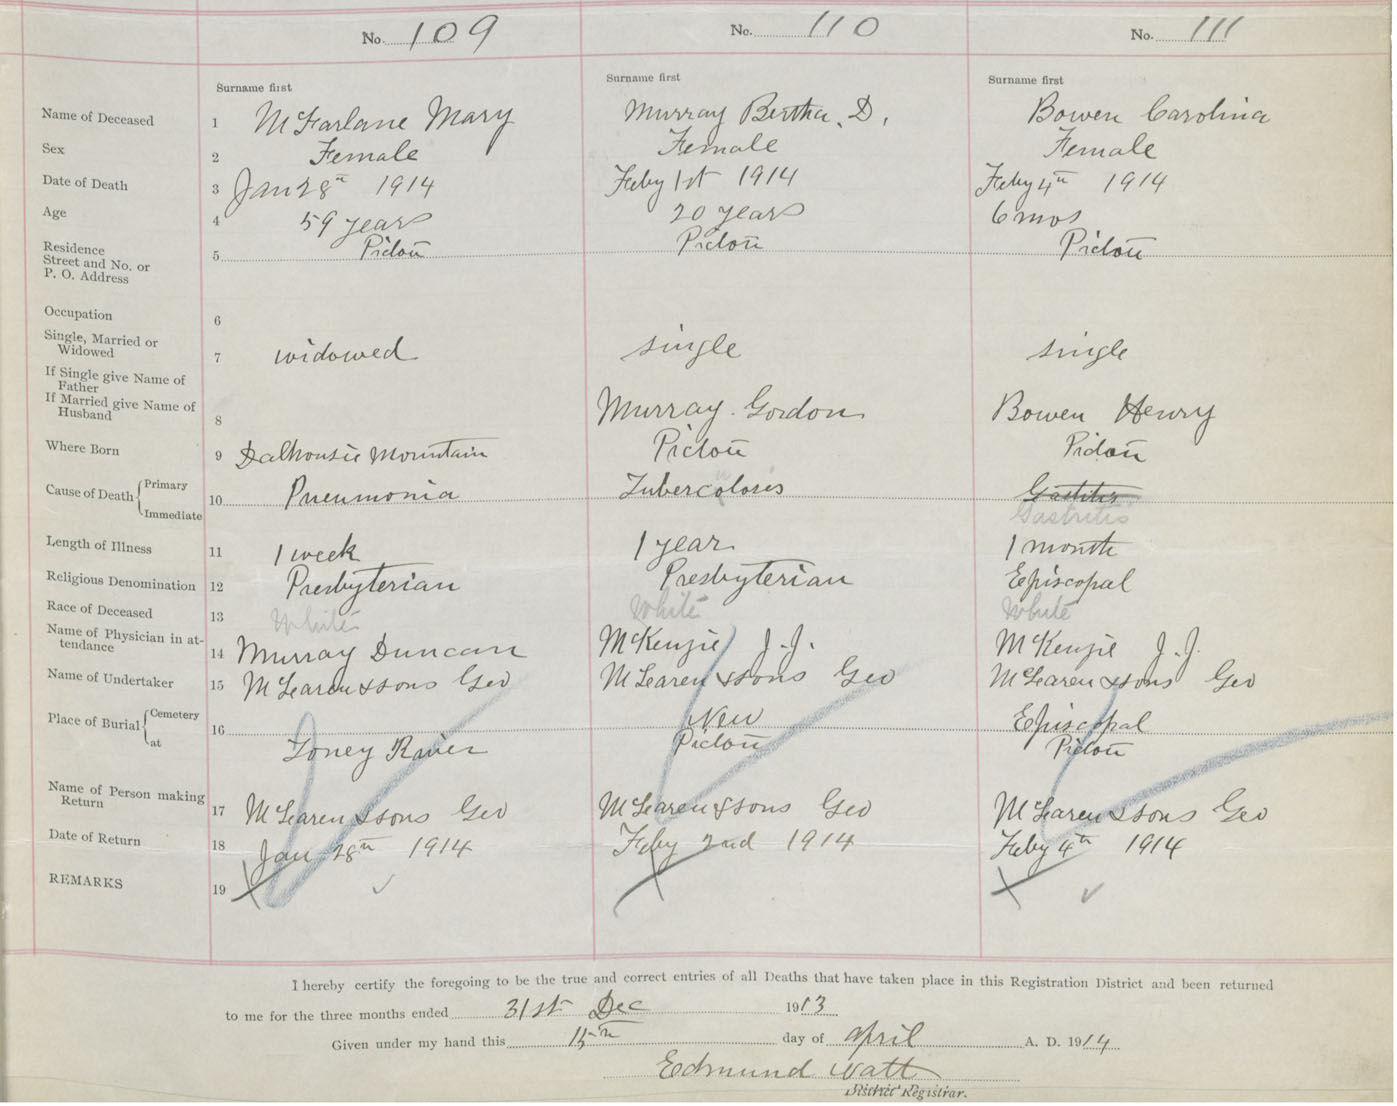 No. 109 No. 110 No. 111
Surname first Surname first Surname first
Name of Deceased 1 McFarlane Mary Murray Bertha. D. Bowen Carolina
Sex 2 Female Female Female
Date of Death 3 Jan 28th 1914 Feby 1st 1914 Feby 4th 1914
Age 4 59 years 20 years 6 mos
Residence
Street and No. or
P. O. Address 5 Pictou Pictou Pictou
Occupation 6
Single, Married or
Widowed 7 widowed single single
If Single give Name of
Father
If Married give Name of
Husband 8 Murray Gordon Bowen Henry
Where Born 9 Dalhousie Mountain Pictou Pictou
Cause of Death { Primary
Immediate 10 Pneumonia Tubercolosis Gastitis
Gastritis
Length of Illness 11 1 week 1 year 1 month
Religious Denomination 12 Presbyterian Presbyterian Episcopal
Race of Deceased 13 White White White
Name of Physician in at-
tendance 14 Murray Duncan McKenzie J. J. McKenzie J. J.
Name of Undertaker 15 McLaren & sons Geo McLaren & sons Geo McLaren & sons Geo
Place of Burial { Cemetery 16 New Episcopal
at Toney River Pictou Pictou
Name of Person making
Return 17 McLaren & sons Geo McLaren & sons Geo McLaren & sons Geo
Date of Return 18 Jan 28th 1914 Feby 2nd 1914 Feby 4th 1914
REMARKS 19
I hereby certify the foregoing to be the true and correct entries of all Deaths that have taken place in this Registration District and been returned
to me for the three months ended 31st Dec 1913
Given under my hand this 15th day of April A. D. 1914
Edmund Watt
District Registrar.